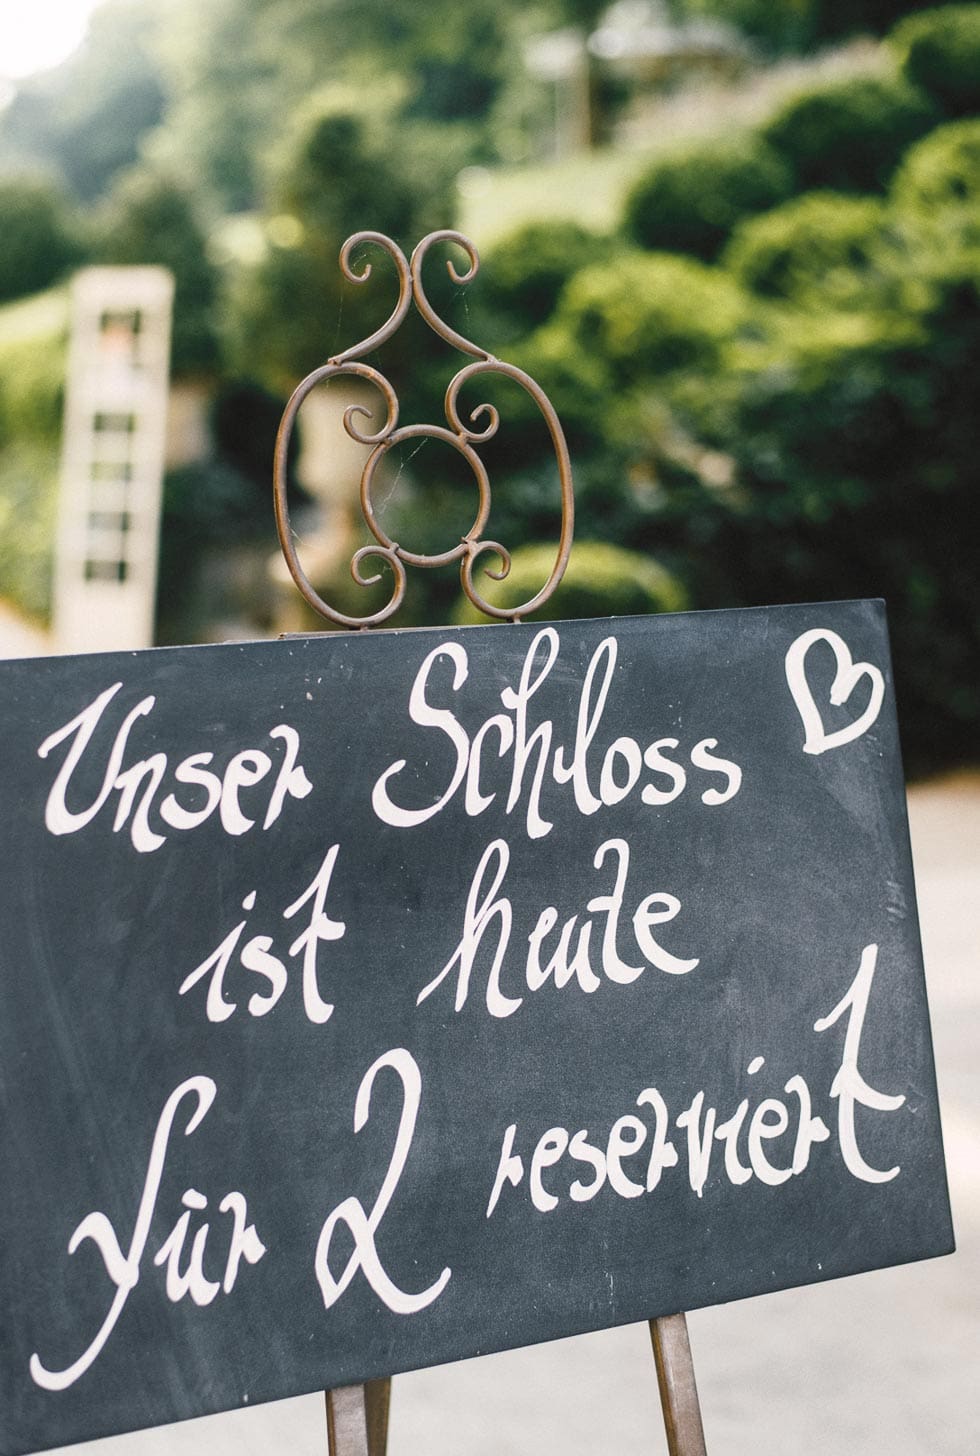 Unser Schloss
ist heute
für 2 reserviert